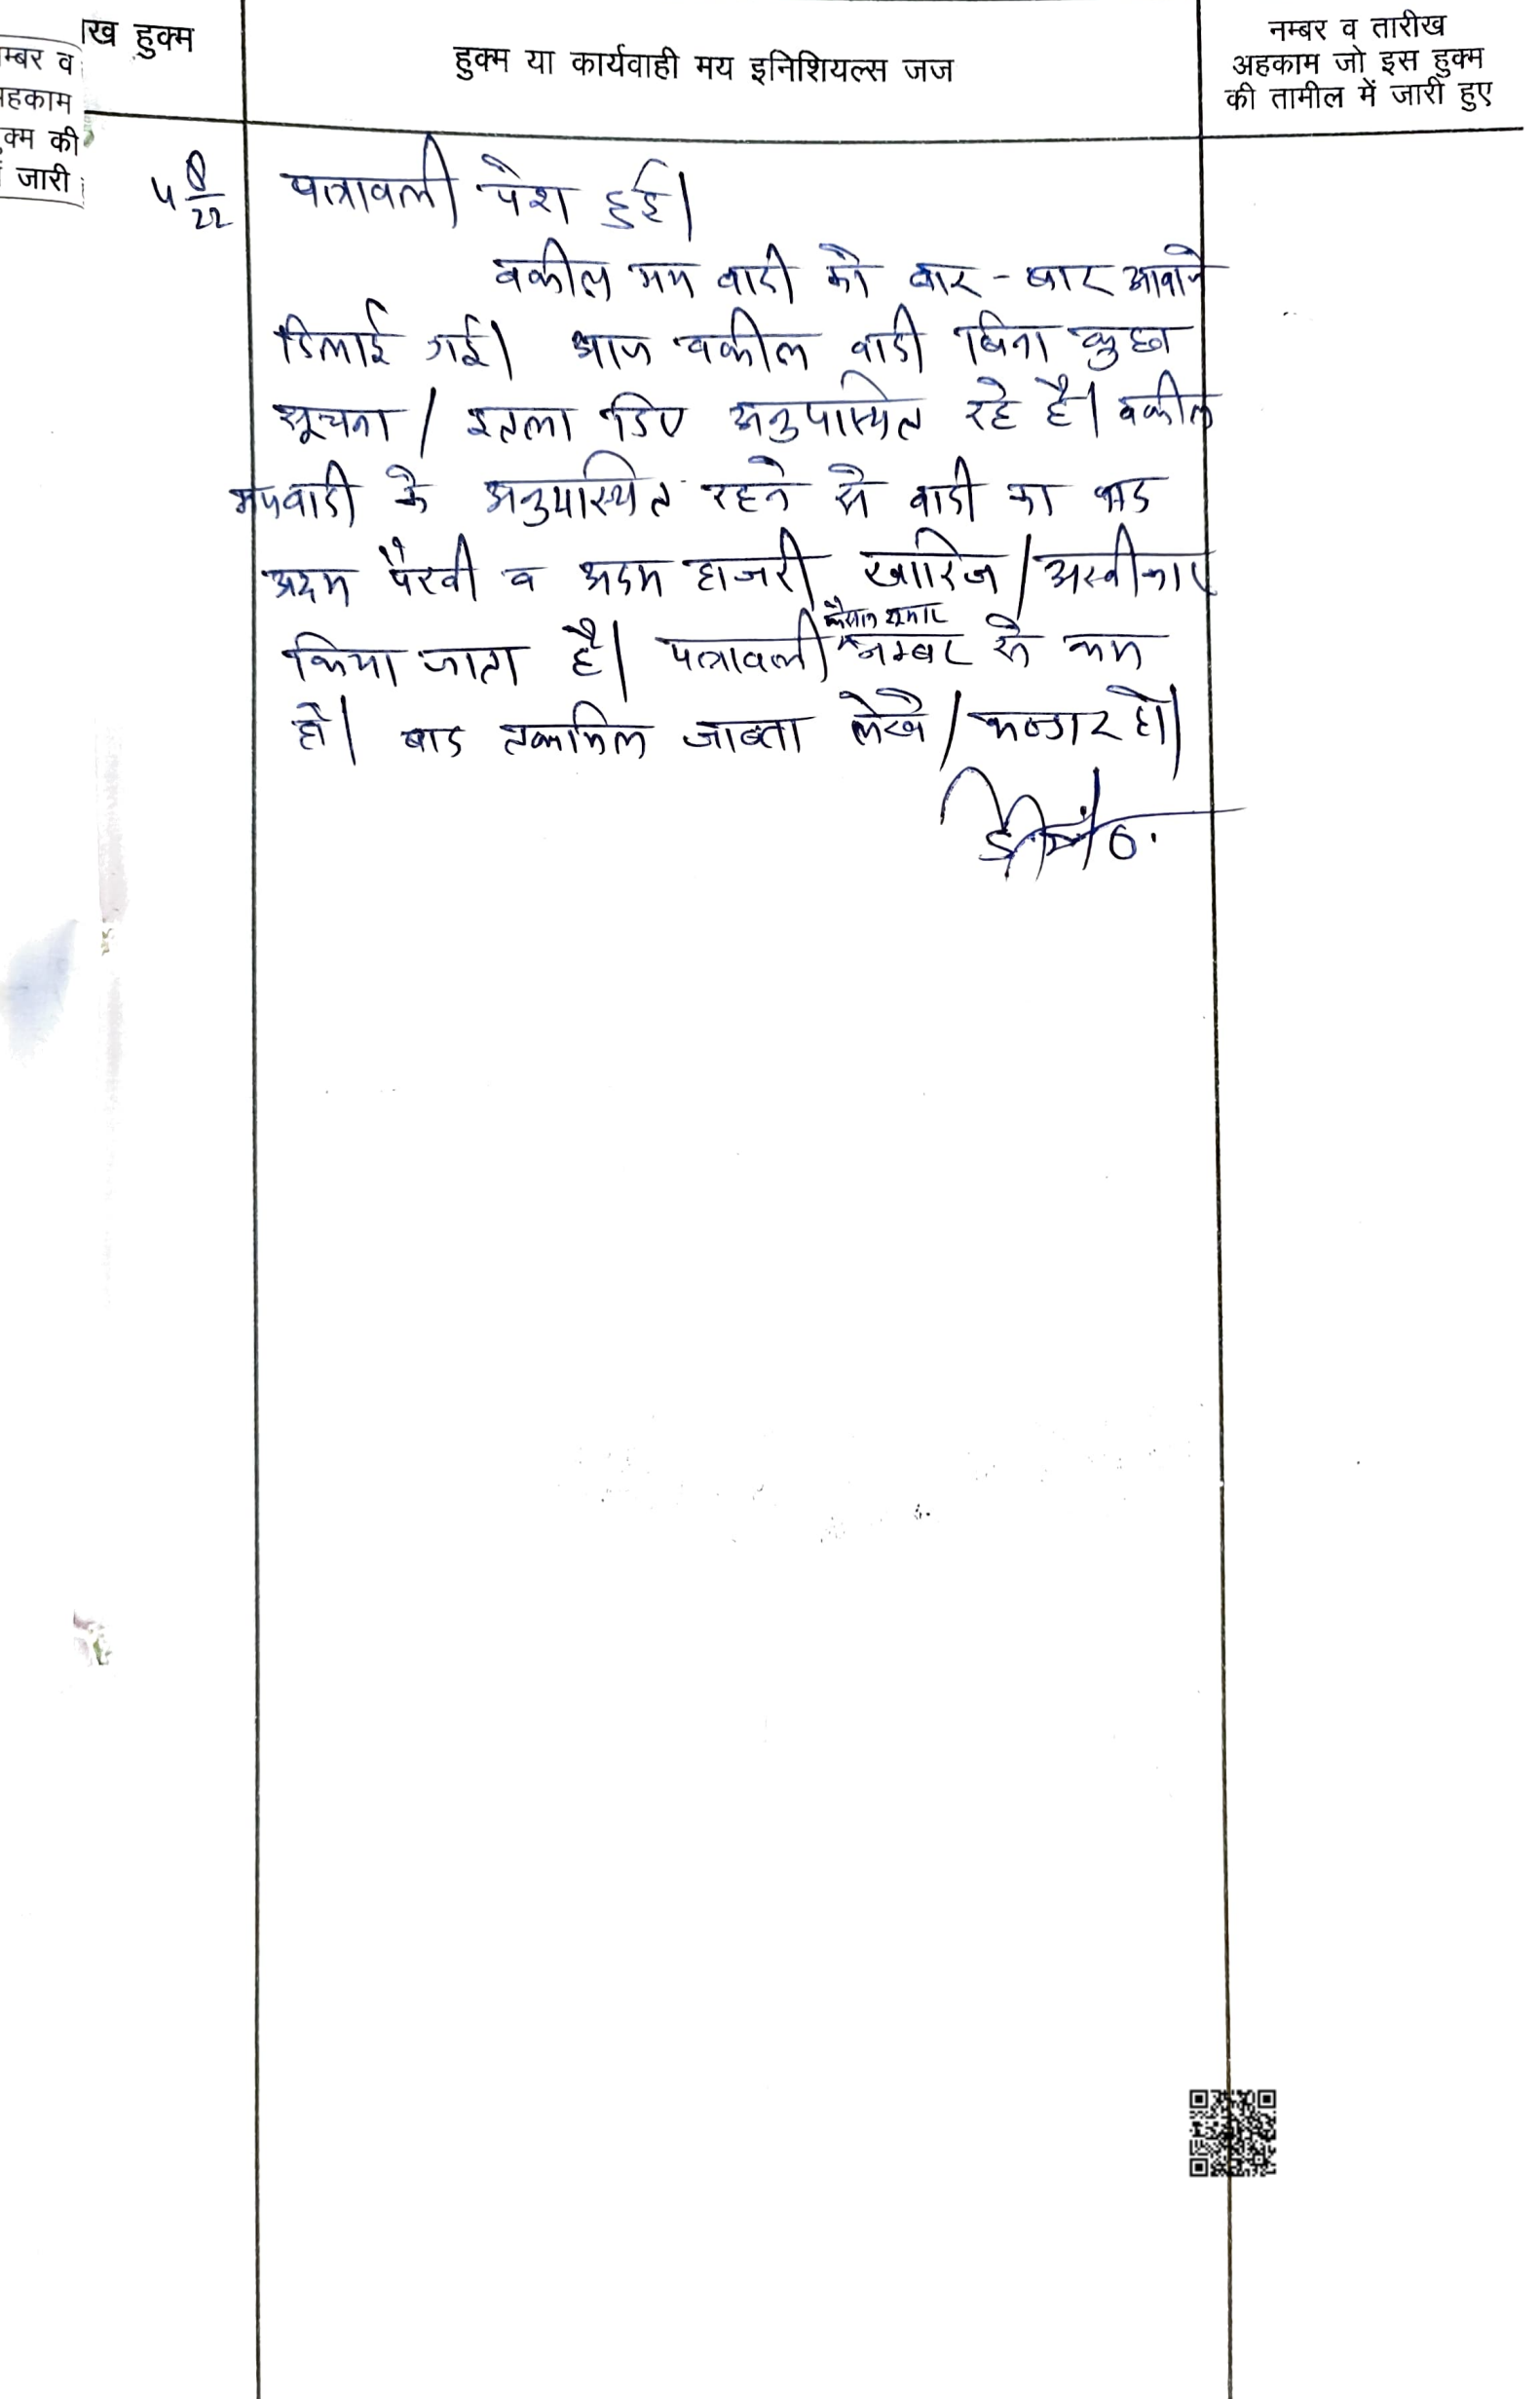 ख हुक्म
म्बर व
अहकाम
क्म की
जारी
हुक्म या कार्यवाही मय इनिशियल्स जज
नम्बर व तारीख
अहकाम जो इस हुक्म
की तामील में जारी हुए
पत्रावली पेश हुई।
वकील मय वादी को बार-बार आवाजे
दिलाई गई। आज वकील वादी बिना कुछ
सूचना / इतला दिए अनुपस्थित रहे है। वकील
मय वादी के अनुपस्थित रहने से वादी का वाद
अदम पैरवी व अदम हाजरी खारिज / अस्वीकार
किया जाता है। पत्रावली फैसल शुमार नम्बर से कम
हो। बाद तकमिल जाब्ता लेखे /